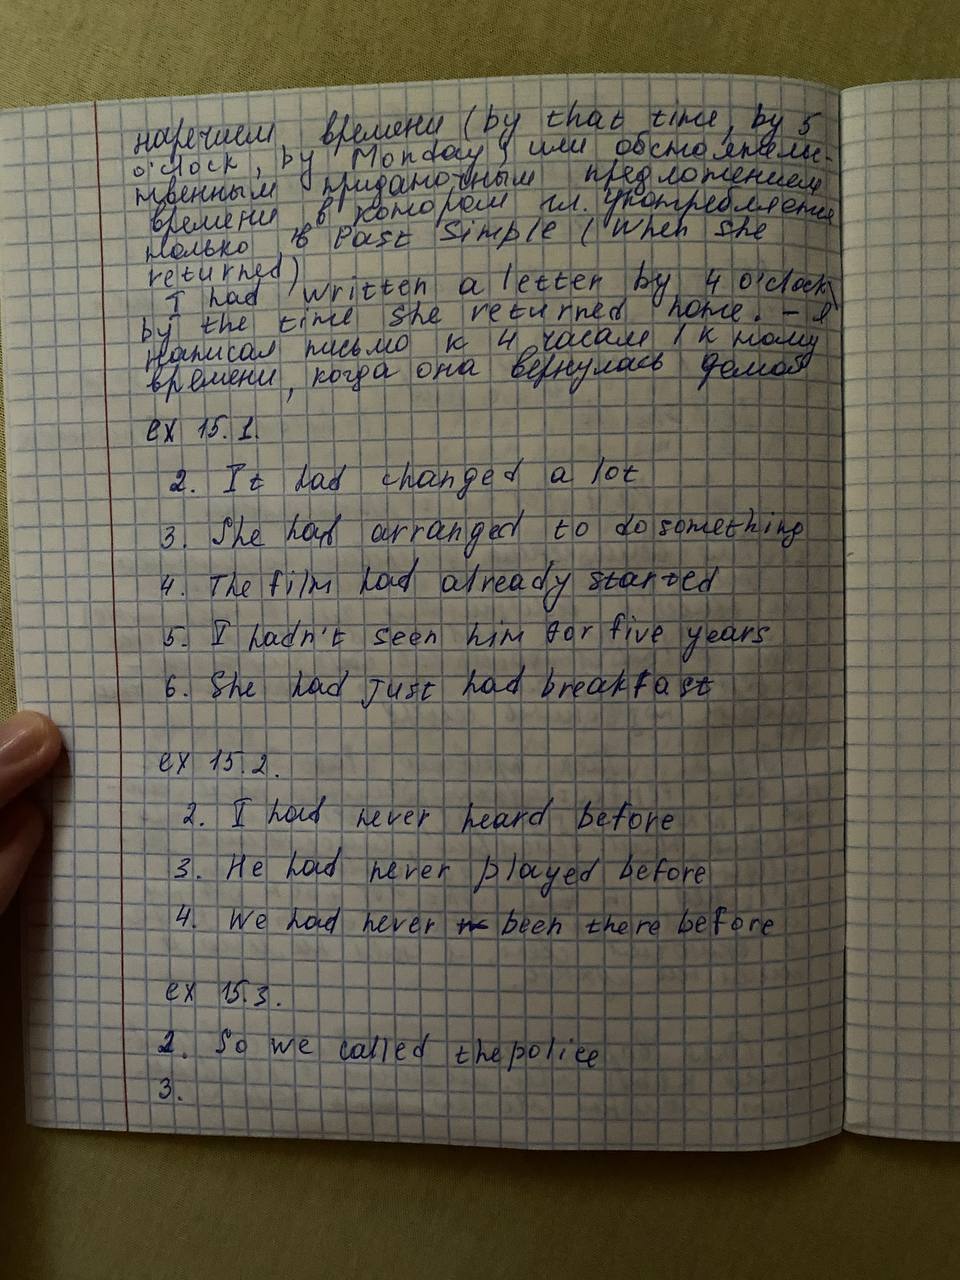 наречием времени (by that time, by 5
o'clock, by Monday) или обстоятель-
ственным придаточным предложением
времени в котором гл. употребляется
только в Past Simple (when she
returned)
I had written a letter by 4 o'clock\
by the time she returned home. – Я
написал письмо к 4 часам / к тому
времени, когда она вернулась домой
ex 15.1.
2. It had changed a lot
3. She had arranged to do something
4. The film had already started
5. I hadn't seen him for five years
6. She had just had breakfast
ex 15.2.
2. I had never heard before
3. He had never played before
4. We had never been there before
ex 15.3.
2. So we called the police
3.